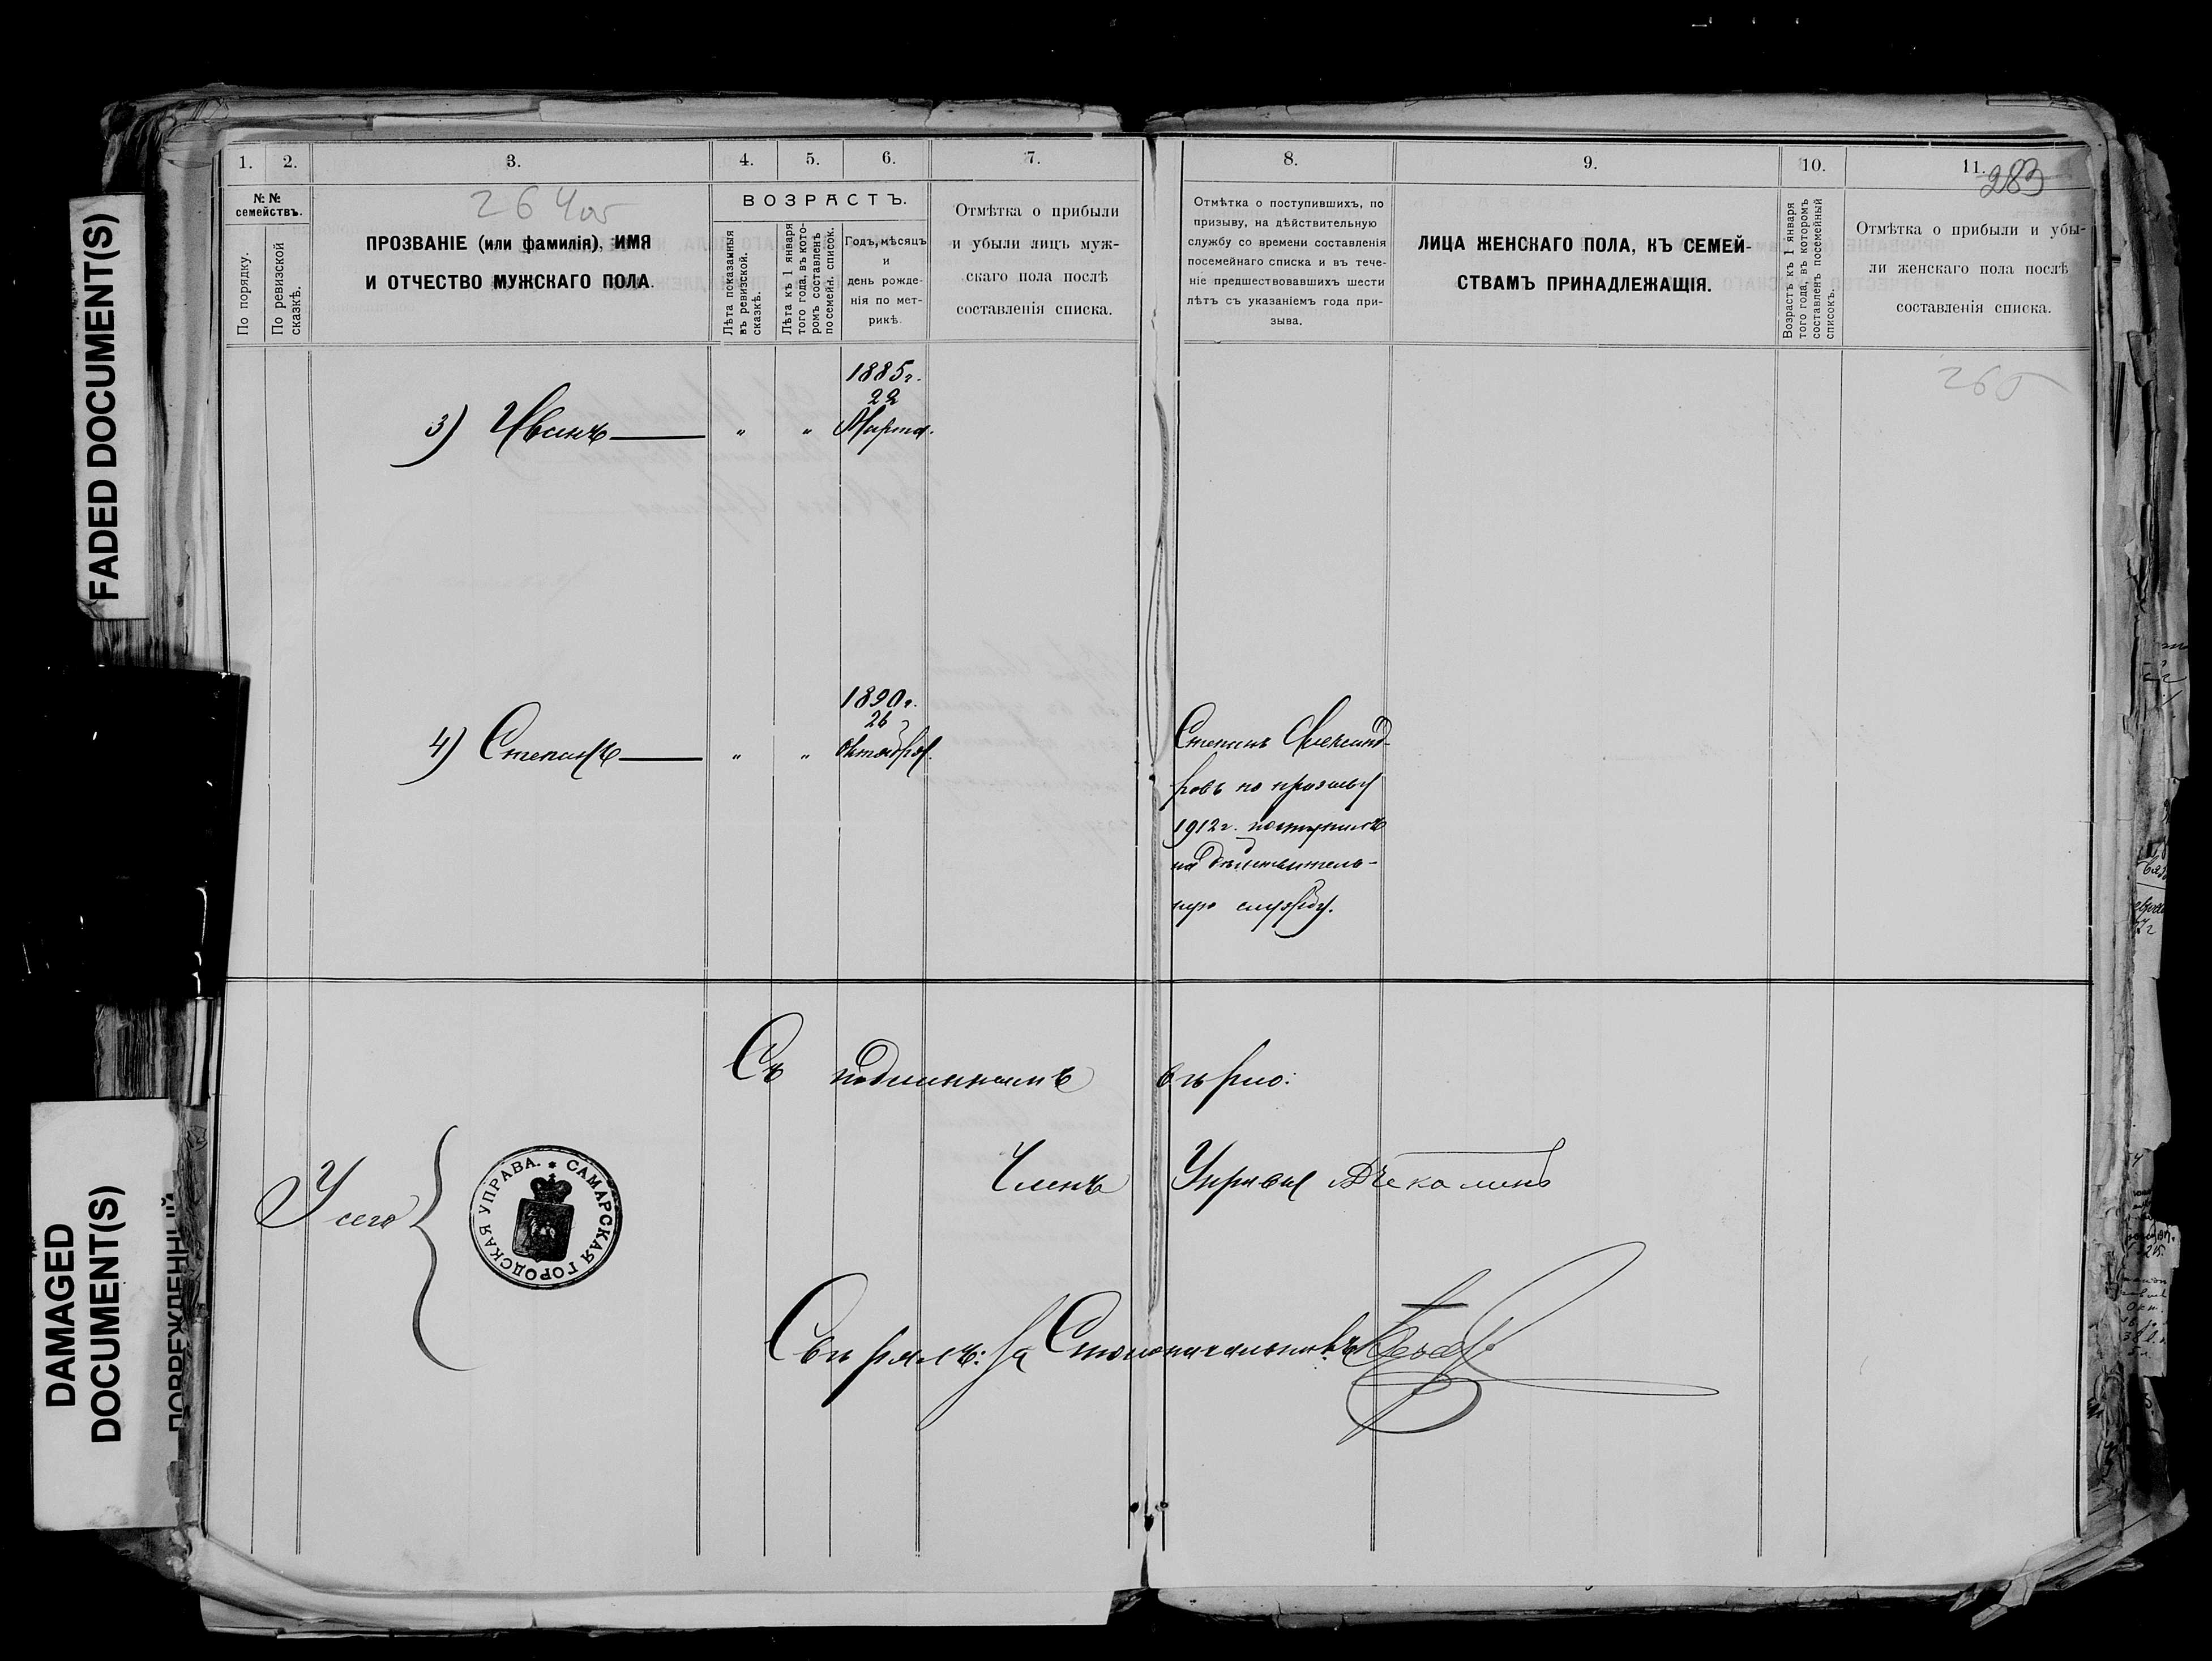 FADED DOCUMENT(S)
DAMAGED
DOCUMENT(S)
1.
2.
3.
4.
5.
6.
7.
№ №
семействъ.
По порядку.
По ревизской
сказкѣ.
264 об
ПРОЗВАНІЕ (или фамилія), ИМЯ
И ОТЧЕСТВО МУЖСКАГО ПОЛА.
ВОЗРАСТЪ.
Лѣта показанныя
въ ревизской.
сказкѣ.
Лѣта къ 1 января
того года, въ кото-
ромъ составленъ
посемейн. список.
Годъ, мѣсяцъ
и
день рожде-
нія по мет-
рикѣ.
Отмѣтка о прибыли
и убыли лицъ муж-
скаго пола послѣ
составленія списка.
8.
9.
10.
11.
283
Отмѣтка о поступившихъ, по
призыву, на дѣйствительную
службу со времени составленія
посемейнаго списка и въ тече-
ніе предшествовавшихъ шести
лѣтъ съ указаніемъ года при-
зыва.
ЛИЦА ЖЕНСКАГО ПОЛА, КЪ СЕМЕЙ-
СТВАМЪ ПРИНАДЛЕЖАЩІЯ.
Возрастъ къ 1 января
того года, въ которомъ
составленъ посемейный
списокъ.
Отмѣтка о прибыли и убы-
ли женскаго пола послѣ
составленія списка.
265
1885г.
22
3) Иванъ " " Марта.
1890г.
26
4) Степанъ " " Октября.
Степанъ Александ-
ровъ по призыву
1912г. поступилъ
на дѣйствитель-
ную службу.
Съ подлиннымъ вѣрно:
Членъ Управы А Чекалинъ
Усего
САМАРСКАЯ ГОРОДСКАЯ УПРАВА.
Свѣрялъ: За Столоначальника